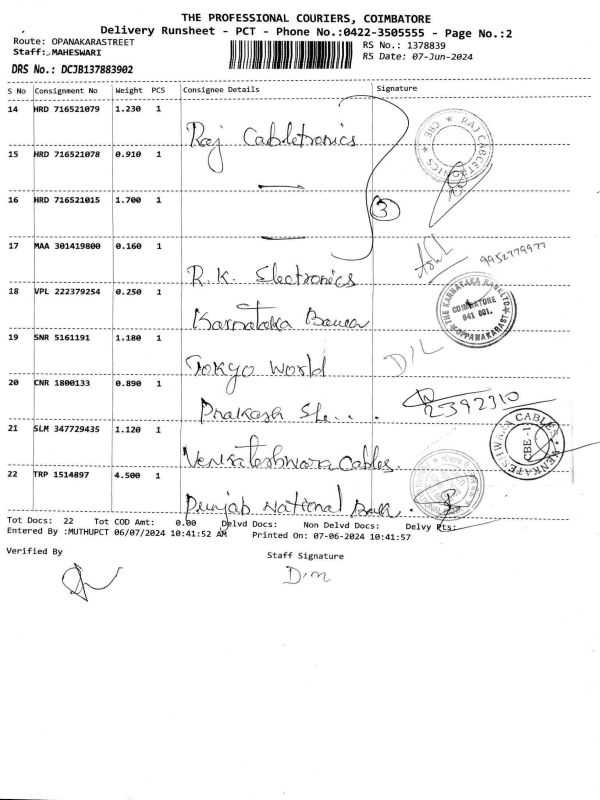 THE PROFESSIONAL COURIERS, COIMBATORE
Delivery Runsheet - PCT - Phone No.:0422-3505555 - Page No.:2
Route: OPANAKARASTREET
RS No.: 1378839
Staff: MAHESWARI
RS Date: 07-Jun-2024
DRS No.: DCJB137883902
S No Consignment No Weight PCS Consignee Details Signature
14 HRD 716521079 1.230 1
Raj Cabletronics
RAJ CABLETRONICS ★ CBE ★
15 HRD 716521078 0.910 1
16 HRD 716521015 1.700 1
3
17 MAA 301419800 0.160 1
R.K. Electronics
9952779977
18 VPL 222379254 0.250 1
Karnataka
THE KARNATAKA BANK LTD
COIMBATORE
641 001.
OPPANAKARAST
19 SNR 5161191 1.180 1
Tokyo World
D/L
20 CNR 1800133 0.890 1
Prakash
2392310
21 SLM 347729435 1.120 1
Venkateshwara Cables.
VENKATESHWARA CABLES
CBE -1
22 TRP 1514897 4.500 1
Punjab National Bank.
Tot Docs: 22 Tot COD Amt: 0.00 Delvd Docs: Non Delvd Docs: Delvy Pts:
Entered By :MUTHUPCT 06/07/2024 10:41:52 AM Printed On: 07-06-2024 10:41:57
Verified By
Staff Signature